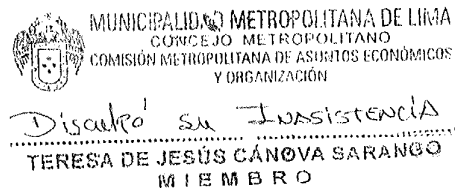 MUNICIPALIDAD METROPOLITANA DE LIMA
CONCEJO METROPOLITANO
COMISIÓN METROPOLITANA DE ASUNTOS ECONÓMICOS
Y ORGANIZACIÓN
Disculpó su Inasistencia
TERESA DE JESÚS CÁNOVA SARANGO
MIEMBRO